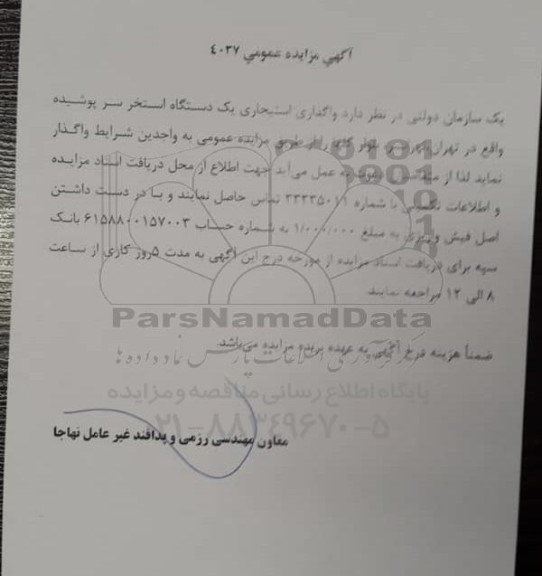 آگهي مزايده عمومي ٤٠٣٧
یک سازمان دولتی در نظر دارد واگذاری استیجاری یک دستگاه استخر سر پوشیده
واقع در تهران را از طریق مزایده عمومی به واجدین شرایط واگذار
نماید لذا از به عمل می آید جهت اطلاع از محل دریافت اسناد مزایده
و اطلاعات با شماره تماس حاصل نمایند و با در دست داشتن
اصل فیش واریزی به مبلغ ۱/۰۰۰/۰۰۰ به شماره حساب ۶۱۵۸۸۰۰۱۵۷۰۰۳ بانک
سپه برای دریافت اسناد مزایده از مورخه درج این آگهی به مدت ۵روز کاری از ساعت
۸ الی ۱۲ مراجعه نمایند
ParsNamadData
ضمناً هزینه درج آگهی به عهده برنده مزایده می باشد.
پایگاه اطلاع رسانی مناقصه و مزایده
۰۲۱-۸۸۳۴۹۶۷۰-۵
معاون مهندسی رزمی و پدافند غیر عامل نهاجا